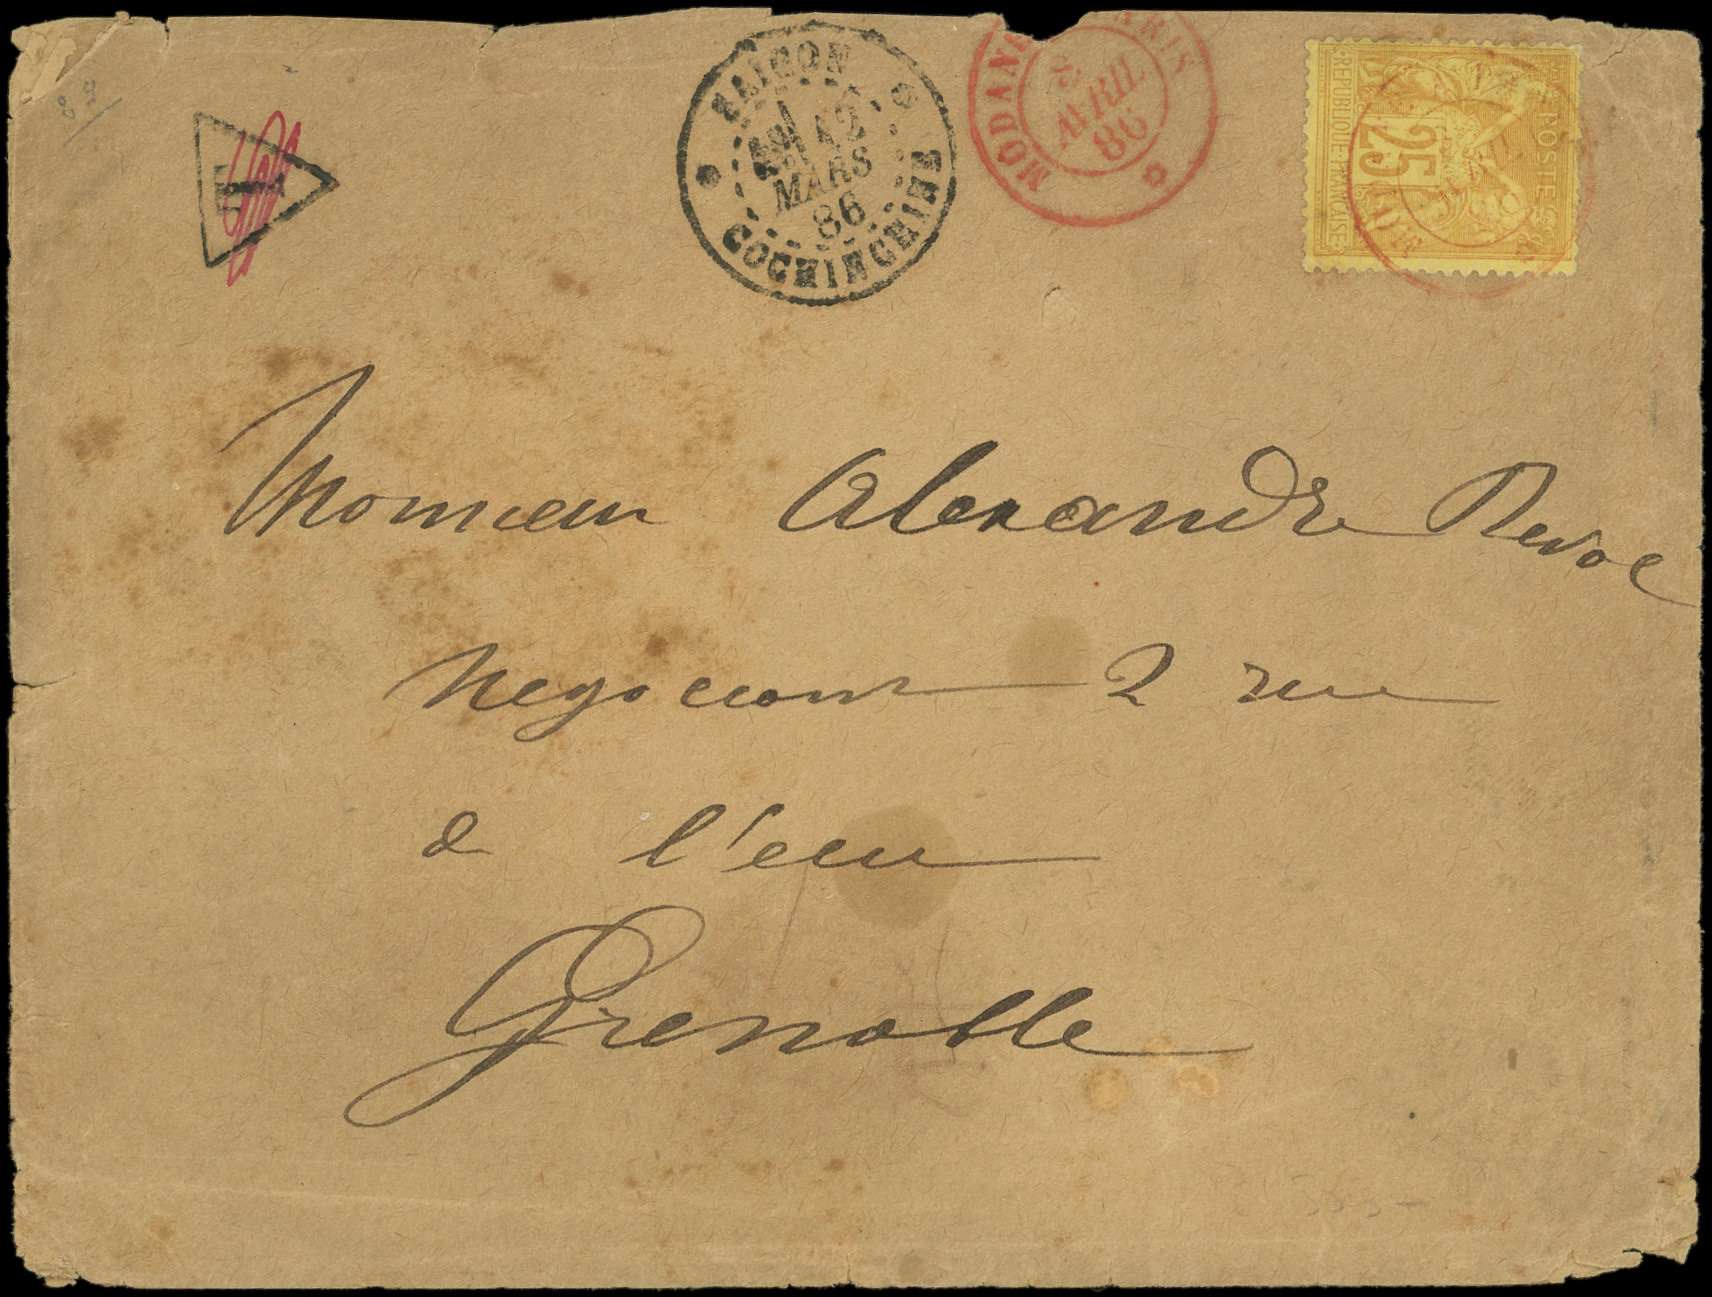 87
T
SAIGON
12
MARS
86
COCHINCHINE
MODANE PARIS
2
AVRIL
86
REPUBLIQUE-FRANÇAISE
25
POSTES
Monsieur Alexandre Revol
Negociant 2 rue
de l'eau
Grenoble